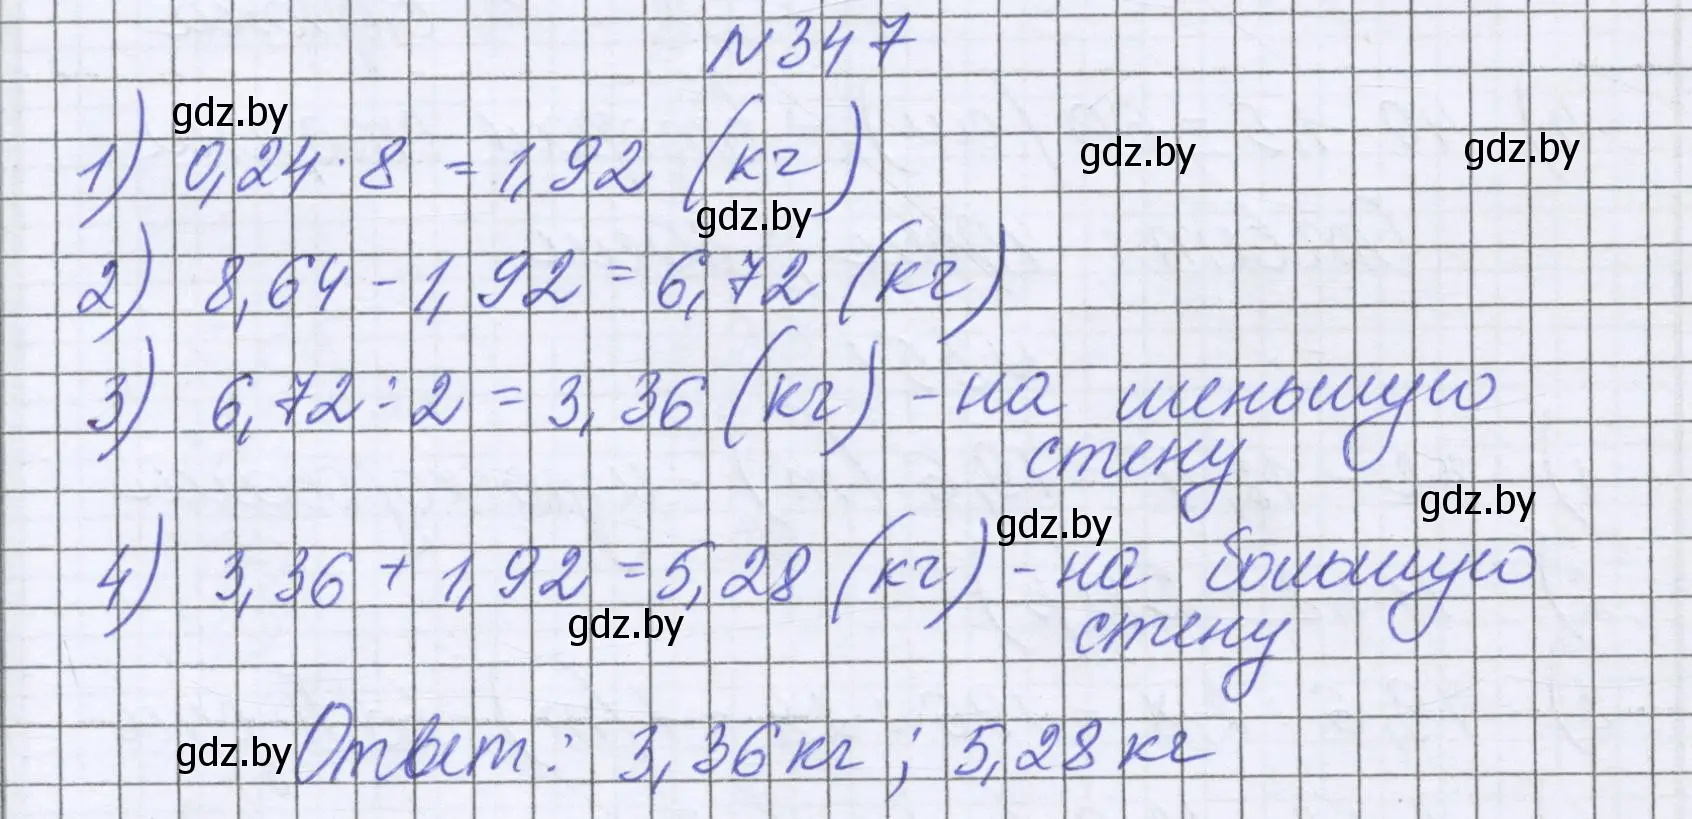 N347
gdz.by
1) 0,24·8 = 1,92 (кг)
gdz.by
gdz.by
gdz.by
2) 8,64 - 1,92 = 6,72 (кг)
3) 6,72 : 2 = 3,36 (кг) - на меньшую
стену
gdz.by
gdz.by
4) 3,36 + 1,92 = 5,28 (кг) - на большую
gdz.by
стену
gdz.by
Ответ: 3,36 кг ; 5,28 кг